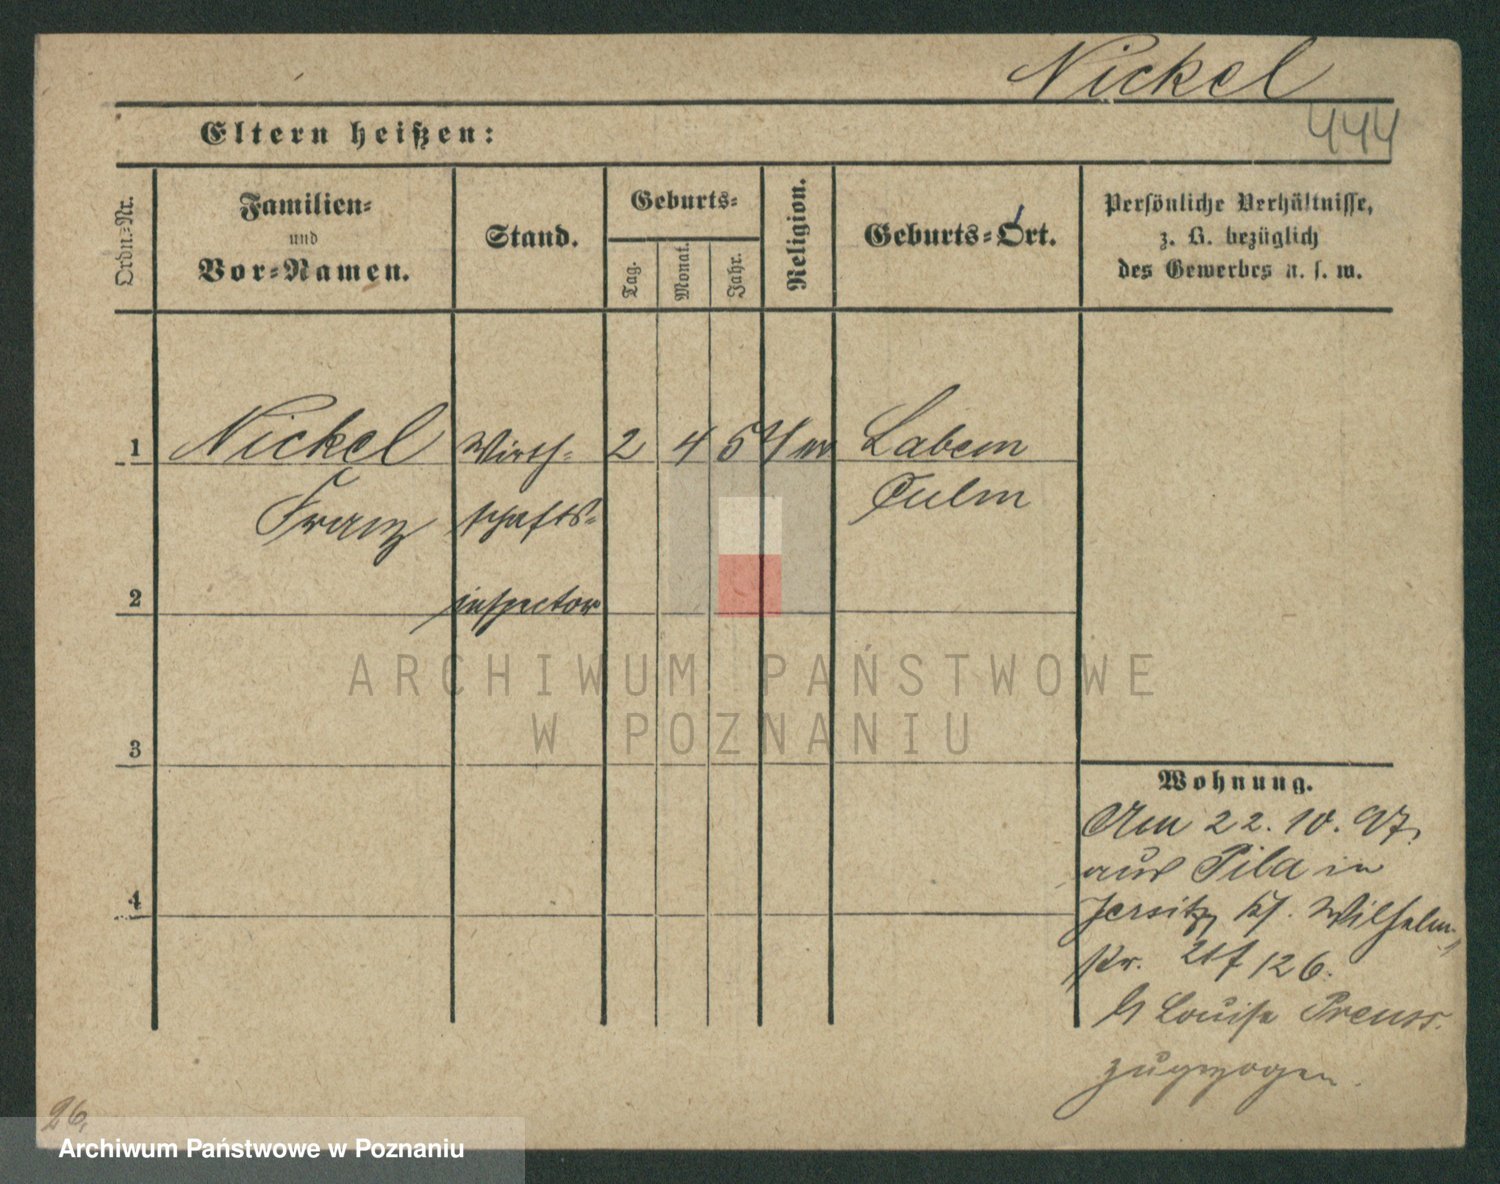 Nickel
444
Eltern heißen:
Ordn.=Nr.
Familien=
und
Vor=Namen.
Stand.
Geburts=
Tag.
Monat.
Jahr.
Religion.
Geburts=Ort.
Persönliche Verhältnisse,
z. B. bezüglich
des Gewerbes u. s. w.
1 Nickel Wirth= 2 4 54 ev Labem
Franz schafts= Culm
2 inspector
ARCHIWUM PAŃSTWOWE
W POZNANIU
3
Wohnung.
Am 22. 10. 97.
aus Pila in
4
Jersitz Wilhelm
str. 126.
b/ Louise Preuss.
zugezogen.
26.
Archiwum Państwowe w Poznaniu